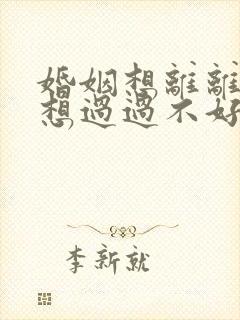 婚姻想離離
想過過不好
李新就